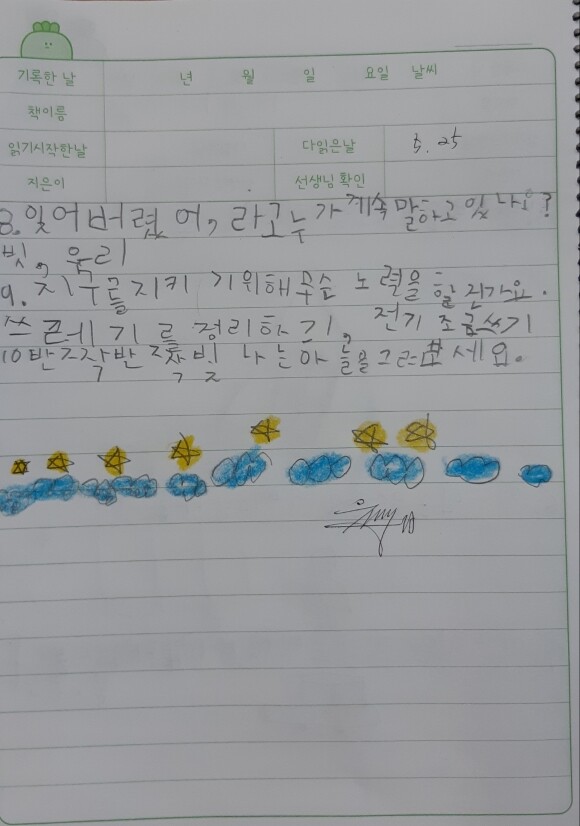 기록한 날 년 월 일 요일 날씨
책이름
읽기시작한날 다읽은날 5. 25
지은이 선생님 확인
8. 잊어버렸어, 라고누가계속말하고있나요?
빗, 우리
9. 지구를지키기위해무슨노력을할건가요.
쓰르레기를정리하기, 전기조금쓰기
10반짝반짝빛나는하늘을그려보세요.